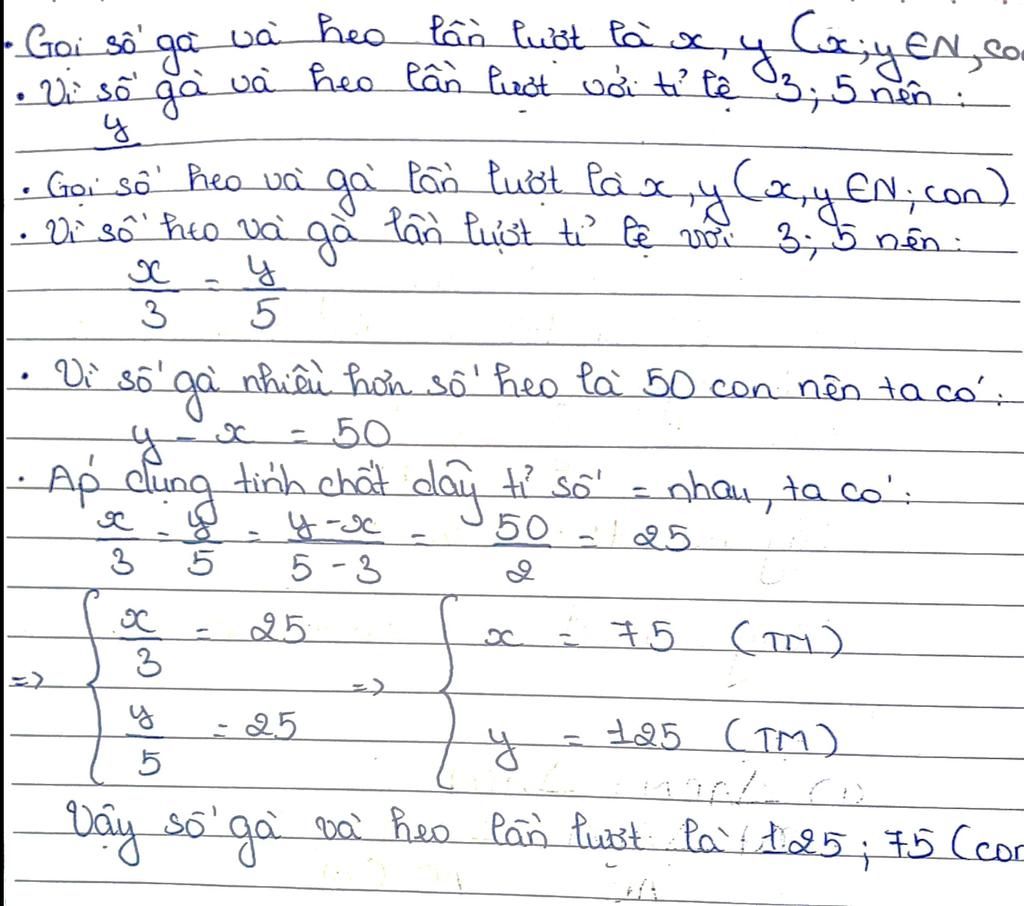 . Gọi số gà và heo lần lượt là x, y (x; y ∈ N, co
. Vì số gà và heo lần lượt với tỉ lệ 3; 5 nên :
y
. Gọi số heo và gà lần lượt là x, y (x, y ∈ N; con)
. Vì số heo và gà lần lượt tỉ lệ với 3; 5 nên :
x/3 = y/5
. Vì số gà nhiều hơn số heo là 50 con nên ta có :
y - x = 50
. Áp dụng tính chất dãy tỉ số = nhau, ta có :
x/3 = y/5 = (y - x)/(5 - 3) = 50/2 = 25
=> { x/3 = 25 => { x = 75 (TM)
y/5 = 25 y = 125 (TM)
Vậy số gà và heo lần lượt là 125; 75 (con